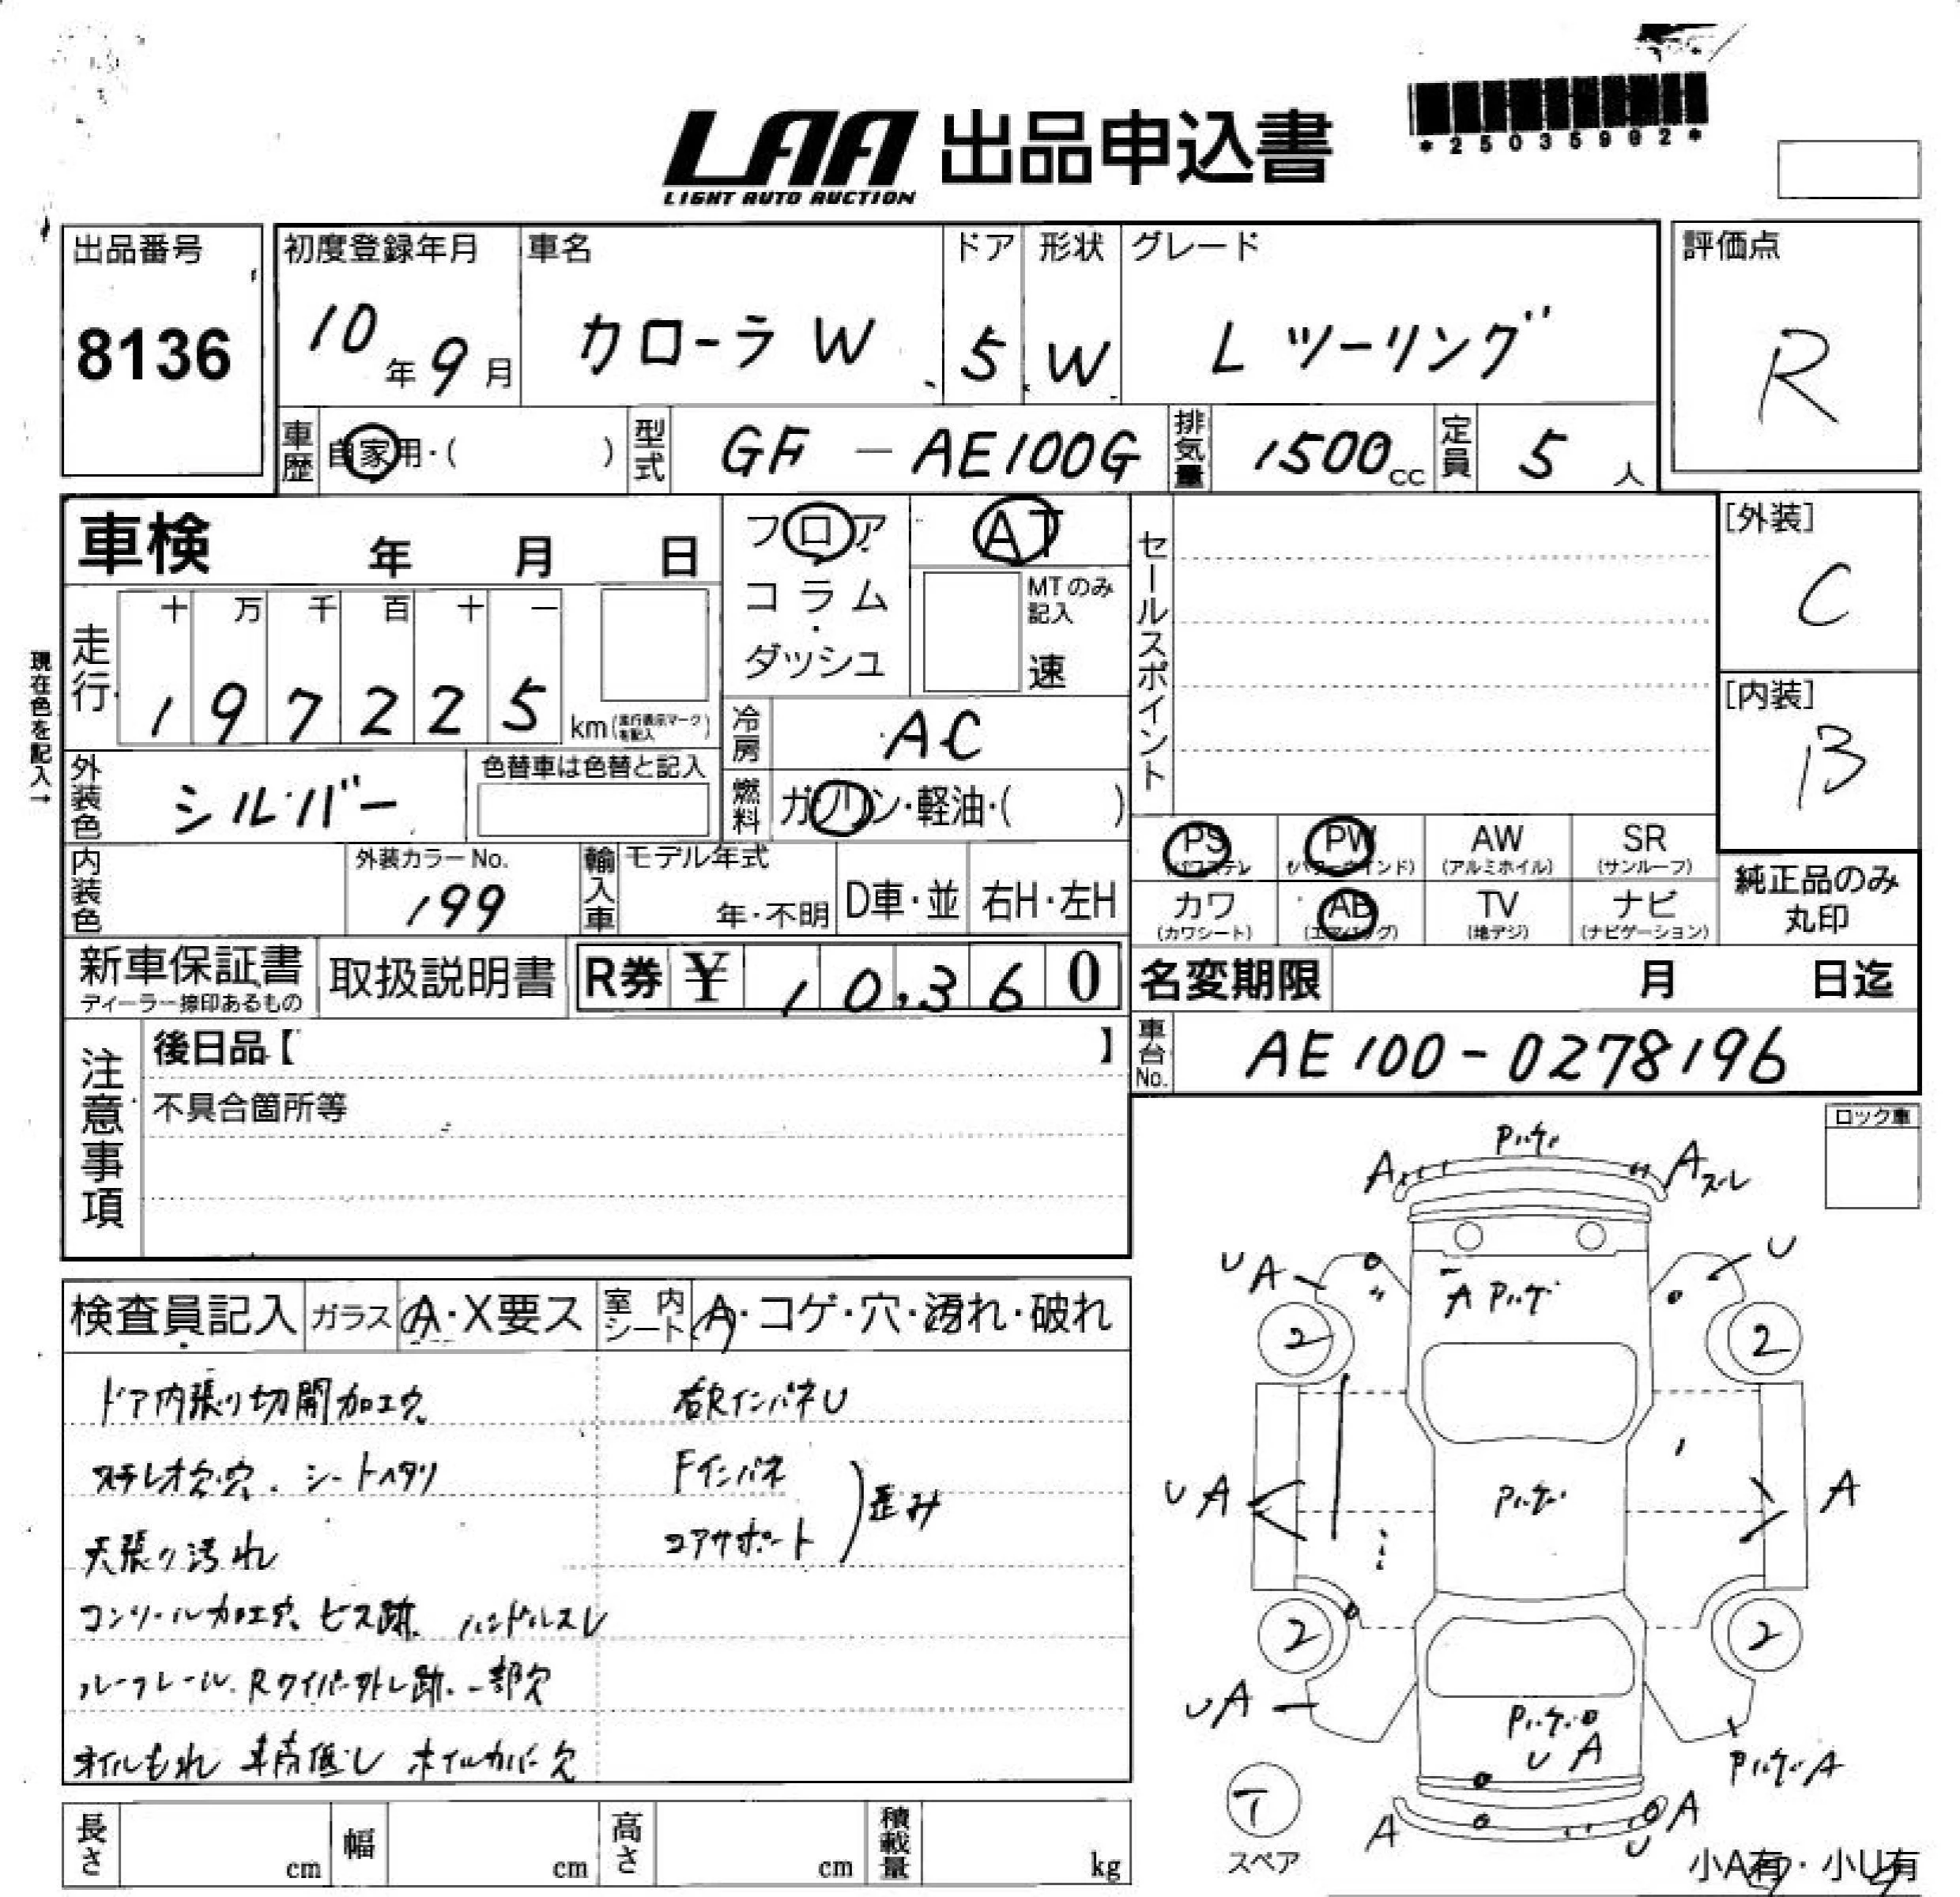 LAA 出品申込書
LIGHT AUTO AUCTION
*25035902*
出品番号
8136
初度登録年月
10年9月
車名
カローラW
ドア
5
形状
W
グレード
Lツーリング
評価点
R
車歴
自家用・( )
型式
GF-AE100G
排気量
1500cc
定員
5人
車検 年 月 日
フロア
コラム
・
ダッシュ
AT
MTのみ
記入
速
セールスポイント
[外装]
C
[内装]
B
現在色を記入→
走行
十 万 千 百 十 一
1 9 7 2 2 5 km (走行表示マークを記入)
冷房
AC
外装色
シルバー
色替車は色替と記入
燃料
ガソリン・軽油・( )
内装色
外装カラーNo.
199
輸入車
モデル年式
年・不明
D車・並
右H・左H
PS
(パワステ)
PW
(パワーウインド)
AW
(アルミホイル)
SR
(サンルーフ)
カワ
(カワシート)
AB
(エアバッグ)
TV
(地デジ)
ナビ
(ナビゲーション)
純正品のみ
丸印
新車保証書
ディーラー捺印あるもの
取扱説明書
R券 ¥ 10,360
名変期限 月 日迄
車台No.
AE100-0278196
注意事項
後日品【 】
不具合箇所等
ロック車
検査員記入
ガラス
A・X要ス
室内シート
A・コゲ・穴・汚れ・破れ
ドア内張り切開加工穴
ステレオ欠穴. シートヘタリ
天張り汚れ
コンソール加工穴、ビス跡. ハンドルスレ
ルーフレール. Rワイパー外し跡. 一部欠
オイルもれ 車高低し ホイルカバー欠
右Rインパネ U
Fインパネ
コアサポート
歪み
P.ケ.
A
Aスレ
UA
U
A P.ケ.
2
2
UA
P.ケ.
A
2
2
UA
P.ケ.
UA
P.ケ.A
T
スペア
A
A
U
小A有・小U有
長さ cm
幅 cm
高さ cm
積載量 kg